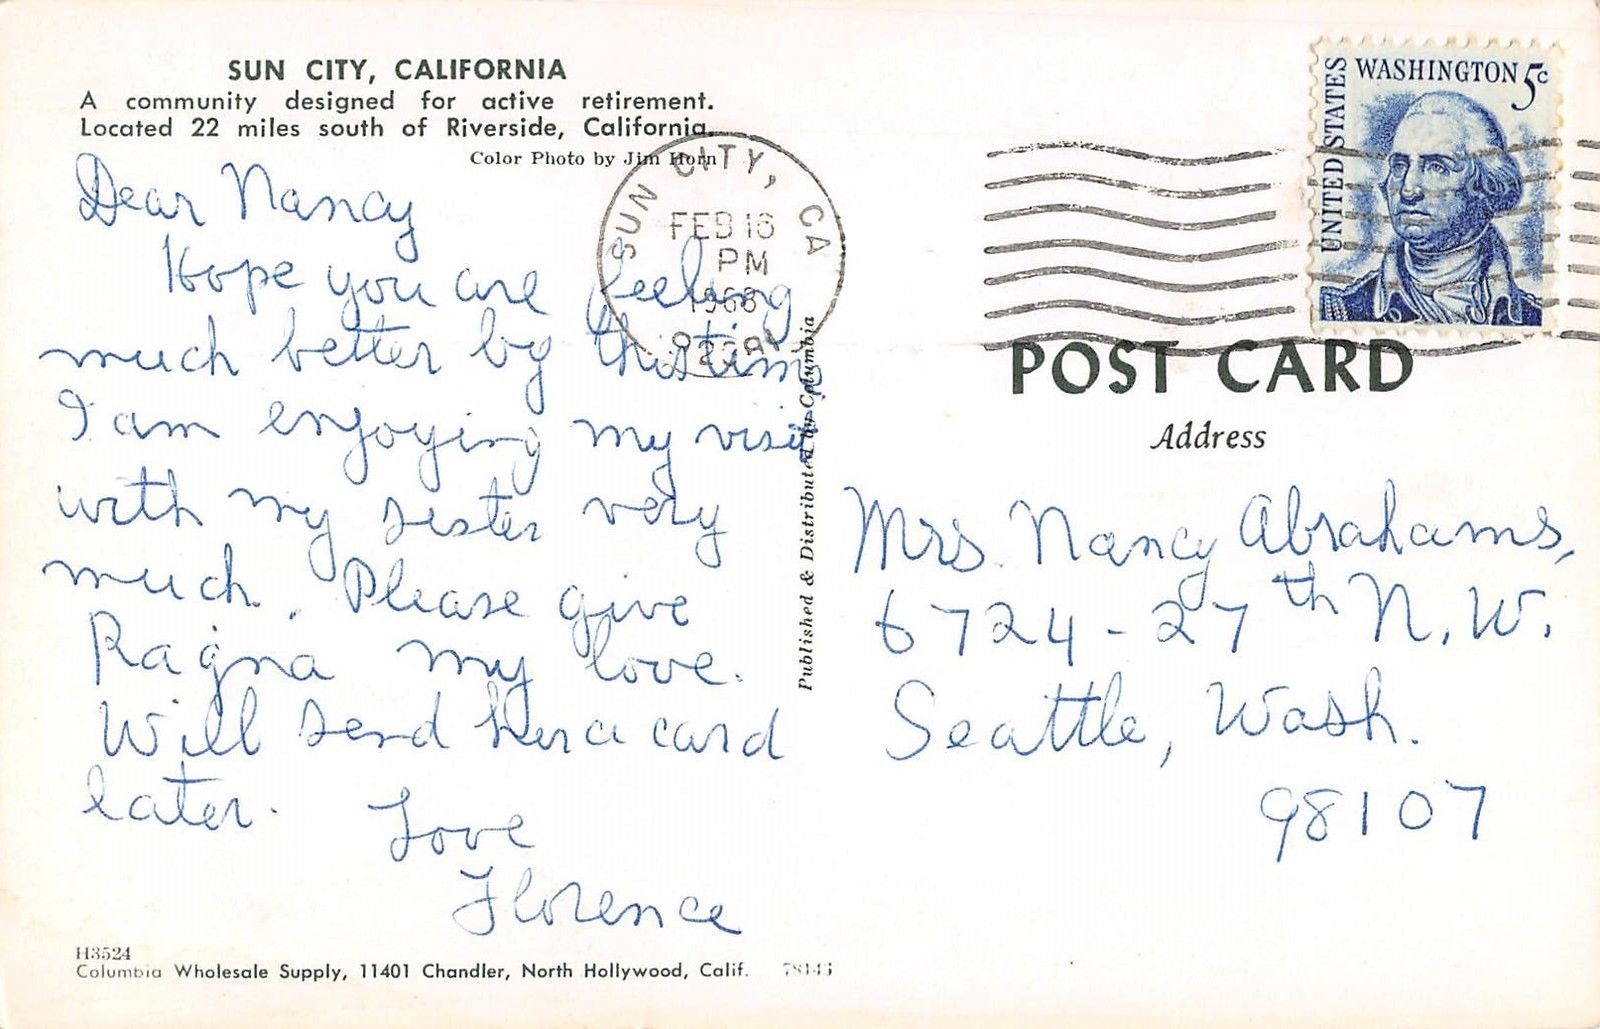 SUN CITY, CALIFORNIA
A community designed for active retirement.
Located 22 miles south of Riverside, California.
Color Photo by Jim Horn
Dear Nancy
Hope you are feeling
much better by this time
I am enjoying my visit
with my sister very
much. Please give
Ragna my love.
Will send her a card
later.
Love
Florence
H3524
Columbia Wholesale Supply, 11401 Chandler, North Hollywood, Calif.
Published & Distributed by Columbia
SUN CITY, CA
FEB 16
PM
1968
UNITED STATES
WASHINGTON 5c
POST CARD
Address
Mrs. Nancy Abrahams,
6724-27th N.W.
Seattle, Wash.
98107